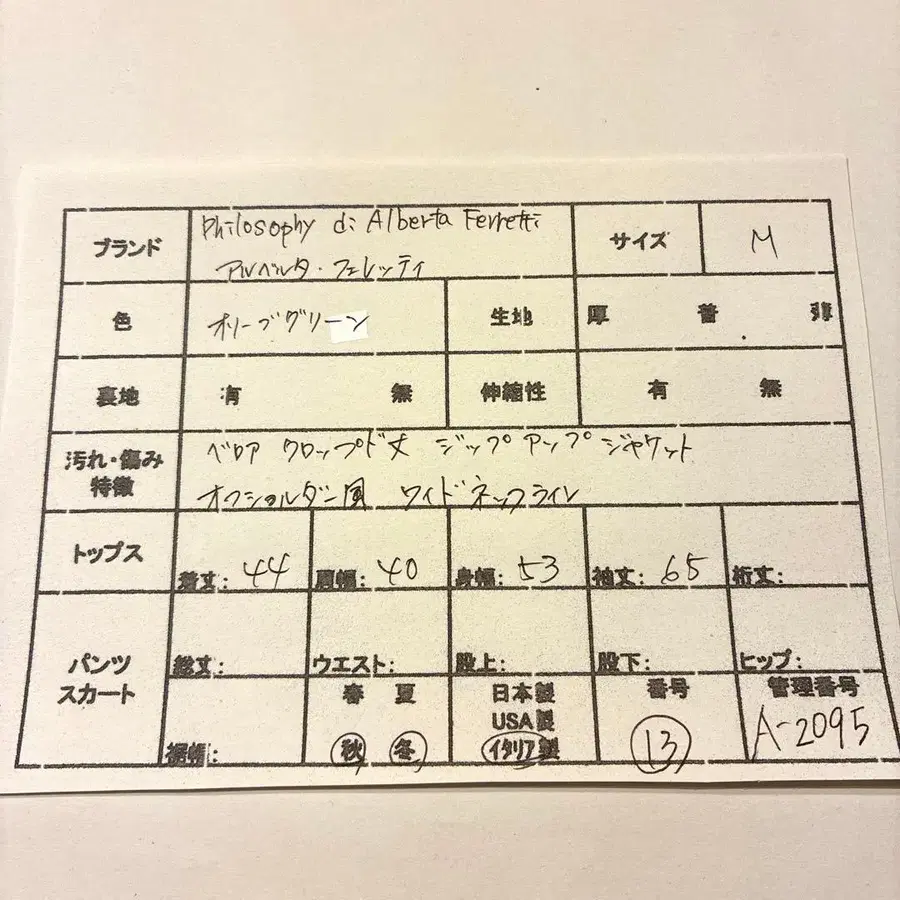 ブランド Philosophy di Alberta Ferretti サイズ M
アルベルタ・フェレッティ
色 オリーブグリーン 生地 厚 普 薄
裏地 有 無 伸縮性 有 無
汚れ・傷み ベロア クロップド丈 ジップアップジャケット
特徴 オフショルダー風 ワイドネックライン
トップス 着丈: 44 肩幅: 40 身幅: 53 袖丈: 65 裄丈:
パンツ 総丈: ウエスト: 股上: 股下: ヒップ:
スカート 裾幅: 春 夏 日本製 番号 管理番号
USA製
秋 冬 イタリア製 13 A-2095